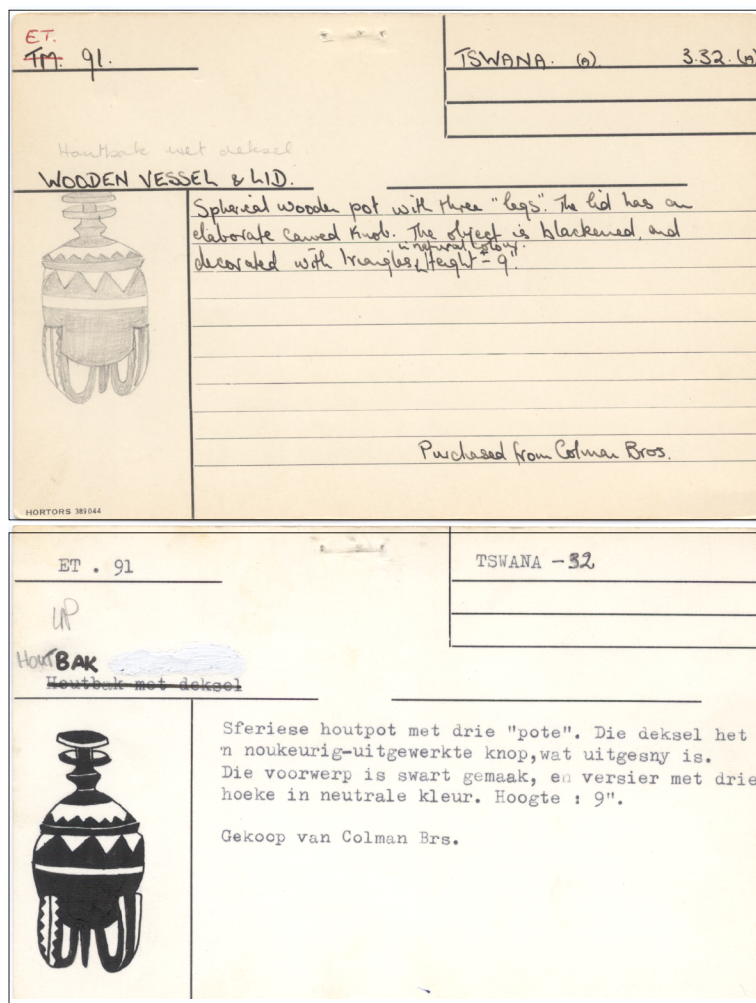 ET.
TM. 91.
TSWANA. (A). 3.32. (A)
Houtbak met deksel
WOODEN VESSEL & LID.
Spherical wooden pot with three "legs". The lid has an
elaborate carved knob. The object is blackened, and
in natural colour.
decorated with triangles. Height ± 9".
Purchased from Colman Bros.
HORTORS 389044
ET . 91
TSWANA -32
UP
HoutBAK
Houtbak met deksel
Sferiese houtpot met drie "pote". Die deksel het
'n noukeurig-uitgewerkte knop,wat uitgesny is.
Die voorwerp is swart gemaak, en versier met drie
hoeke in neutrale kleur. Hoogte : 9".
Gekoop van Colman Brs.